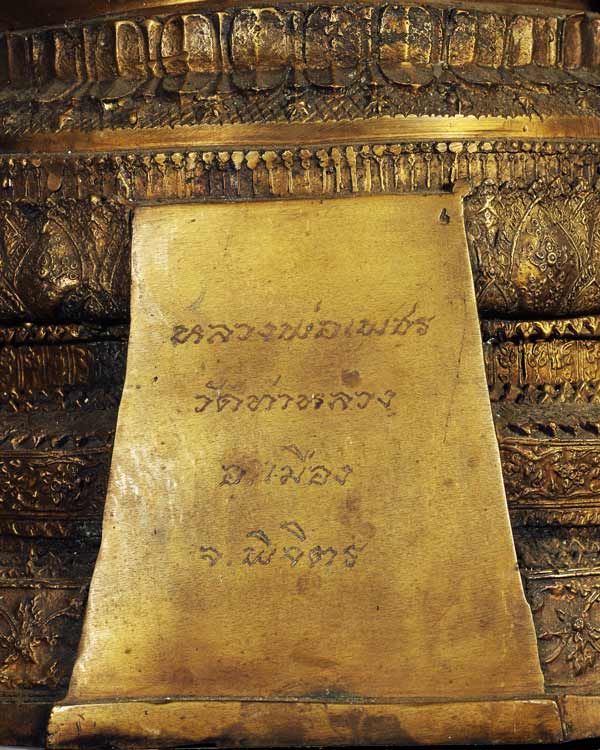 ๖
หลวงพ่อเพชร
วัดท่าหลวง
อ.เมือง
จ.พิจิตร